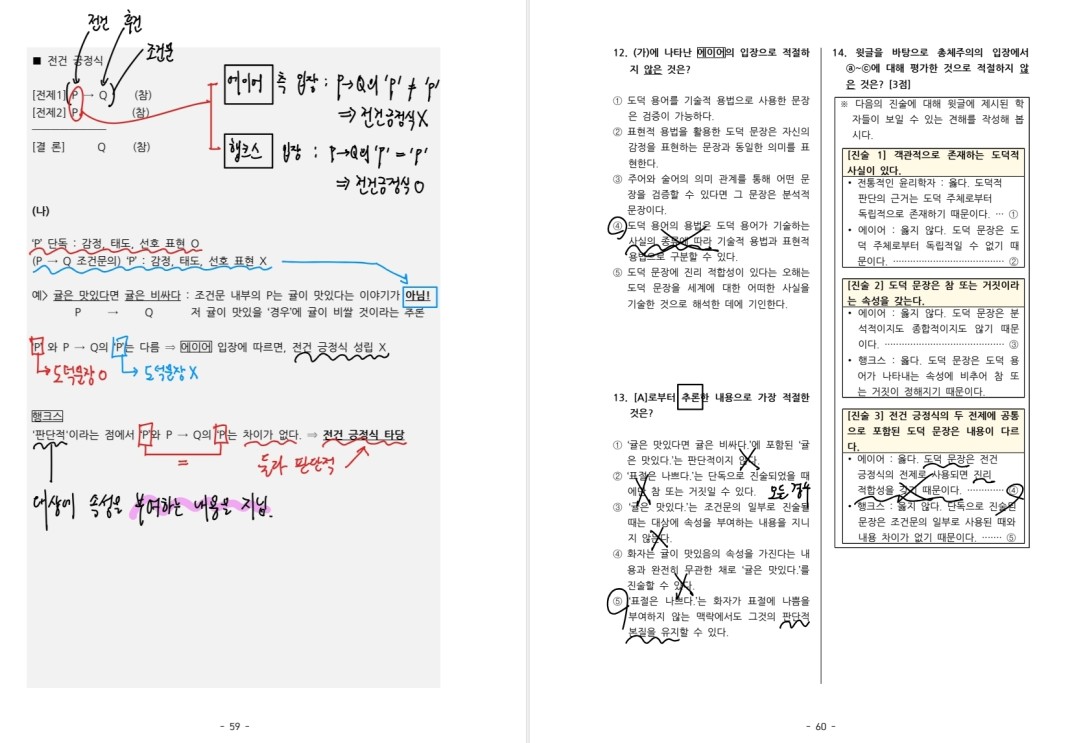 전건 후건
조건문
■ 전건 긍정식
[전제1] P → Q (참)
[전제2] P (참)
[결 론] Q (참)
에이어 측 입장 : P→Q의 'P' ≠ 'P'
⇒ 전건긍정식 X
행크스 입장 : P→Q의 'P' = 'P'
⇒ 전건긍정식 O
(나)
'P' 단독 : 감정, 태도, 선호 표현 O
(P → Q 조건문의) 'P' : 감정, 태도, 선호 표현 X
예> 귤은 맛있다면 귤은 비싸다 : 조건문 내부의 P는 귤이 맛있다는 이야기가 아님!
P → Q 저 귤이 맛있을 '경우'에 귤이 비쌀 것이라는 추론
'P'와 P → Q의 'P'는 다름 ⇒ 에이어 입장에 따르면, 전건 긍정식 성립 X
도덕문장 O 도덕문장 X
행크스
'판단적'이라는 점에서 'P'와 P → Q의 'P'는 차이가 없다. ⇒ 전건 긍정식 타당
=
둘다 판단적
대상에 속성을 부여하는 내용을 지님.
- 59 -
12. (가)에 나타난 에이어의 입장으로 적절하
지 않은 것은?
① 도덕 용어를 기술적 용법으로 사용한 문장
은 검증이 가능하다.
② 표현적 용법을 활용한 도덕 문장은 자신의
감정을 표현하는 문장과 동일한 의미를 표
현한다.
③ 주어와 술어의 의미 관계를 통해 어떤 문
장을 검증할 수 있다면 그 문장은 분석적
문장이다.
④ 도덕 용어의 용법은 도덕 용어가 기술하는
사실의 종류에 따라 기술적 용법과 표현적
용법으로 구분할 수 있다.
⑤ 도덕 문장에 진리 적합성이 있다는 오해는
도덕 문장을 세계에 대한 어떠한 사실을
기술한 것으로 해석한 데에 기인한다.
13. [A]로부터 추론한 내용으로 가장 적절한
것은?
① '귤은 맛있다면 귤은 비싸다.'에 포함된 '귤
은 맛있다.'는 판단적이지 않다.
② '표절은 나쁘다.'는 단독으로 진술되었을 때
에만 참 또는 거짓일 수 있다. 모든 경우
③ '귤은 맛있다.'는 조건문의 일부로 진술될
때는 대상에 속성을 부여하는 내용을 지니
지 않는다.
④ 화자는 귤이 맛있음의 속성을 가진다는 내
용과 완전히 무관한 채로 '귤은 맛있다.'를
진술할 수 있다.
⑤ '표절은 나쁘다.'는 화자가 표절에 나쁨을
부여하지 않는 맥락에서도 그것의 판단적
본질을 유지할 수 있다.
14. 윗글을 바탕으로 총체주의의 입장에서
ⓐ~ⓒ에 대해 평가한 것으로 적절하지 않
은 것은? [3점]
※ 다음의 진술에 대해 윗글에 제시된 학
자들이 보일 수 있는 견해를 작성해 봅
시다.
[진술 1] 객관적으로 존재하는 도덕적
사실이 있다.
• 전통적인 윤리학자 : 옳다. 도덕적
판단의 근거는 도덕 주체로부터
독립적으로 존재하기 때문이다. … ①
• 에이어 : 옳지 않다. 도덕 문장은 도
덕 주체로부터 독립적일 수 없기 때
문이다. ………………………………… ②
[진술 2] 도덕 문장은 참 또는 거짓이라
는 속성을 갖는다.
• 에이어 : 옳지 않다. 도덕 문장은 분
석적이지도 종합적이지도 않기 때문
이다. …………………………………… ③
• 행크스 : 옳다. 도덕 문장은 도덕 용
어가 나타내는 속성에 비추어 참 또
는 거짓이 정해지기 때문이다.
[진술 3] 전건 긍정식의 두 전제에 공통
으로 포함된 도덕 문장은 내용이 다르
다.
• 에이어 : 옳다. 도덕 문장은 전건
긍정식의 전제로 사용되면 진리
적합성을 갖기 때문이다. ………… ④
• 행크스 : 옳지 않다. 단독으로 진술된
문장은 조건문의 일부로 사용된 때와
내용 차이가 없기 때문이다. ……… ⑤
- 60 -